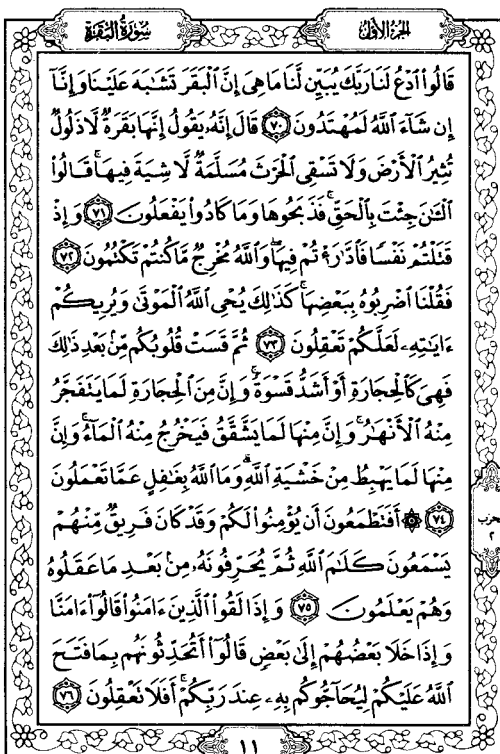 سُورَةُ البَقَرَةِ الجُزْءُ الأَوَّلُ
قَالُوا۟ ٱدْعُ لَنَا رَبَّكَ يُبَيِّن لَّنَا مَا هِىَ إِنَّ ٱلْبَقَرَ تَشَٰبَهَ عَلَيْنَا وَإِنَّآ
إِن شَآءَ ٱللَّهُ لَمُهْتَدُونَ ٧٠ قَالَ إِنَّهُۥ يَقُولُ إِنَّهَا بَقَرَةٌ لَّا ذَلُولٌ
تُثِيرُ ٱلْأَرْضَ وَلَا تَسْقِى ٱلْحَرْثَ مُسَلَّمَةٌ لَّا شِيَةَ فِيهَا ۚ قَالُوا۟
ٱلْـَٰٔنَ جِئْتَ بِٱلْحَقِّ ۚ فَذَبَحُوهَا وَمَا كَادُوا۟ يَفْعَلُونَ ٧١ وَإِذْ
قَتَلْتُمْ نَفْسًا فَٱدَّٰرَْٰٔتُمْ فِيهَا ۖ وَٱللَّهُ مُخْرِجٌ مَّا كُنتُمْ تَكْتُمُونَ ٧٢
فَقُلْنَا ٱضْرِبُوهُ بِبَعْضِهَا ۚ كَذَٰلِكَ يُحْىِ ٱللَّهُ ٱلْمَوْتَىٰ وَيُرِيكُمْ
ءَايَٰتِهِۦ لَعَلَّكُمْ تَعْقِلُونَ ٧٣ ثُمَّ قَسَتْ قُلُوبُكُم مِّنۢ بَعْدِ ذَٰلِكَ
فَهِىَ كَٱلْحِجَارَةِ أَوْ أَشَدُّ قَسْوَةً ۚ وَإِنَّ مِنَ ٱلْحِجَارَةِ لَمَا يَتَفَجَّرُ
مِنْهُ ٱلْأَنْهَٰرُ ۚ وَإِنَّ مِنْهَا لَمَا يَشَّقَّقُ فَيَخْرُجُ مِنْهُ ٱلْمَآءُ ۚ وَإِنَّ
مِنْهَا لَمَا يَهْبِطُ مِنْ خَشْيَةِ ٱللَّهِ ۗ وَمَا ٱللَّهُ بِغَٰفِلٍ عَمَّا تَعْمَلُونَ
٧٤ ۞ أَفَتَطْمَعُونَ أَن يُؤْمِنُوا۟ لَكُمْ وَقَدْ كَانَ فَرِيقٌ مِّنْهُمْ
يَسْمَعُونَ كَلَٰمَ ٱللَّهِ ثُمَّ يُحَرِّفُونَهُۥ مِنۢ بَعْدِ مَا عَقَلُوهُ
وَهُمْ يَعْلَمُونَ ٧٥ وَإِذَا لَقُوا۟ ٱلَّذِينَ ءَامَنُوا۟ قَالُوٓا۟ ءَامَنَّا
وَإِذَا خَلَا بَعْضُهُمْ إِلَىٰ بَعْضٍ قَالُوٓا۟ أَتُحَدِّثُونَهُم بِمَا فَتَحَ
ٱللَّهُ عَلَيْكُمْ لِيُحَآجُّوكُم بِهِۦ عِندَ رَبِّكُمْ ۚ أَفَلَا تَعْقِلُونَ ٧٦
الحزب
٢
١١